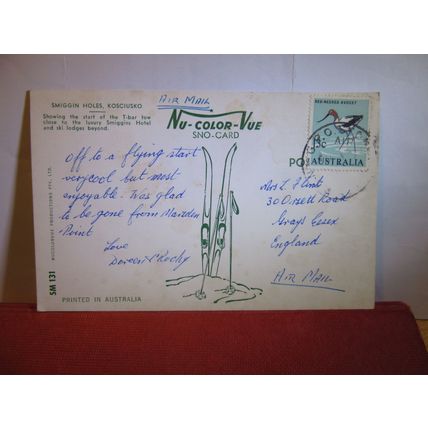 SMIGGIN HOLES, KOSCIUSKO
Showing the start of the T-bar tow
close to the luxury Smiggins Hotel
and ski lodges beyond.
AIR MAIL
NU-COLOR-VUE
SNO-CARD
Off to a flying start
very cool but most
enjoyable. Was glad
to be gone from
Point
Love
Doreen
NUCOLORVUE PRODUCTIONS PTY. LTD.
SM 131
PRINTED IN AUSTRALIA
RED-NECKED AVOCET
AUSTRALIA
PO
Mrs L Flint
30 Road
Grays Essex
England
AIR MAIL